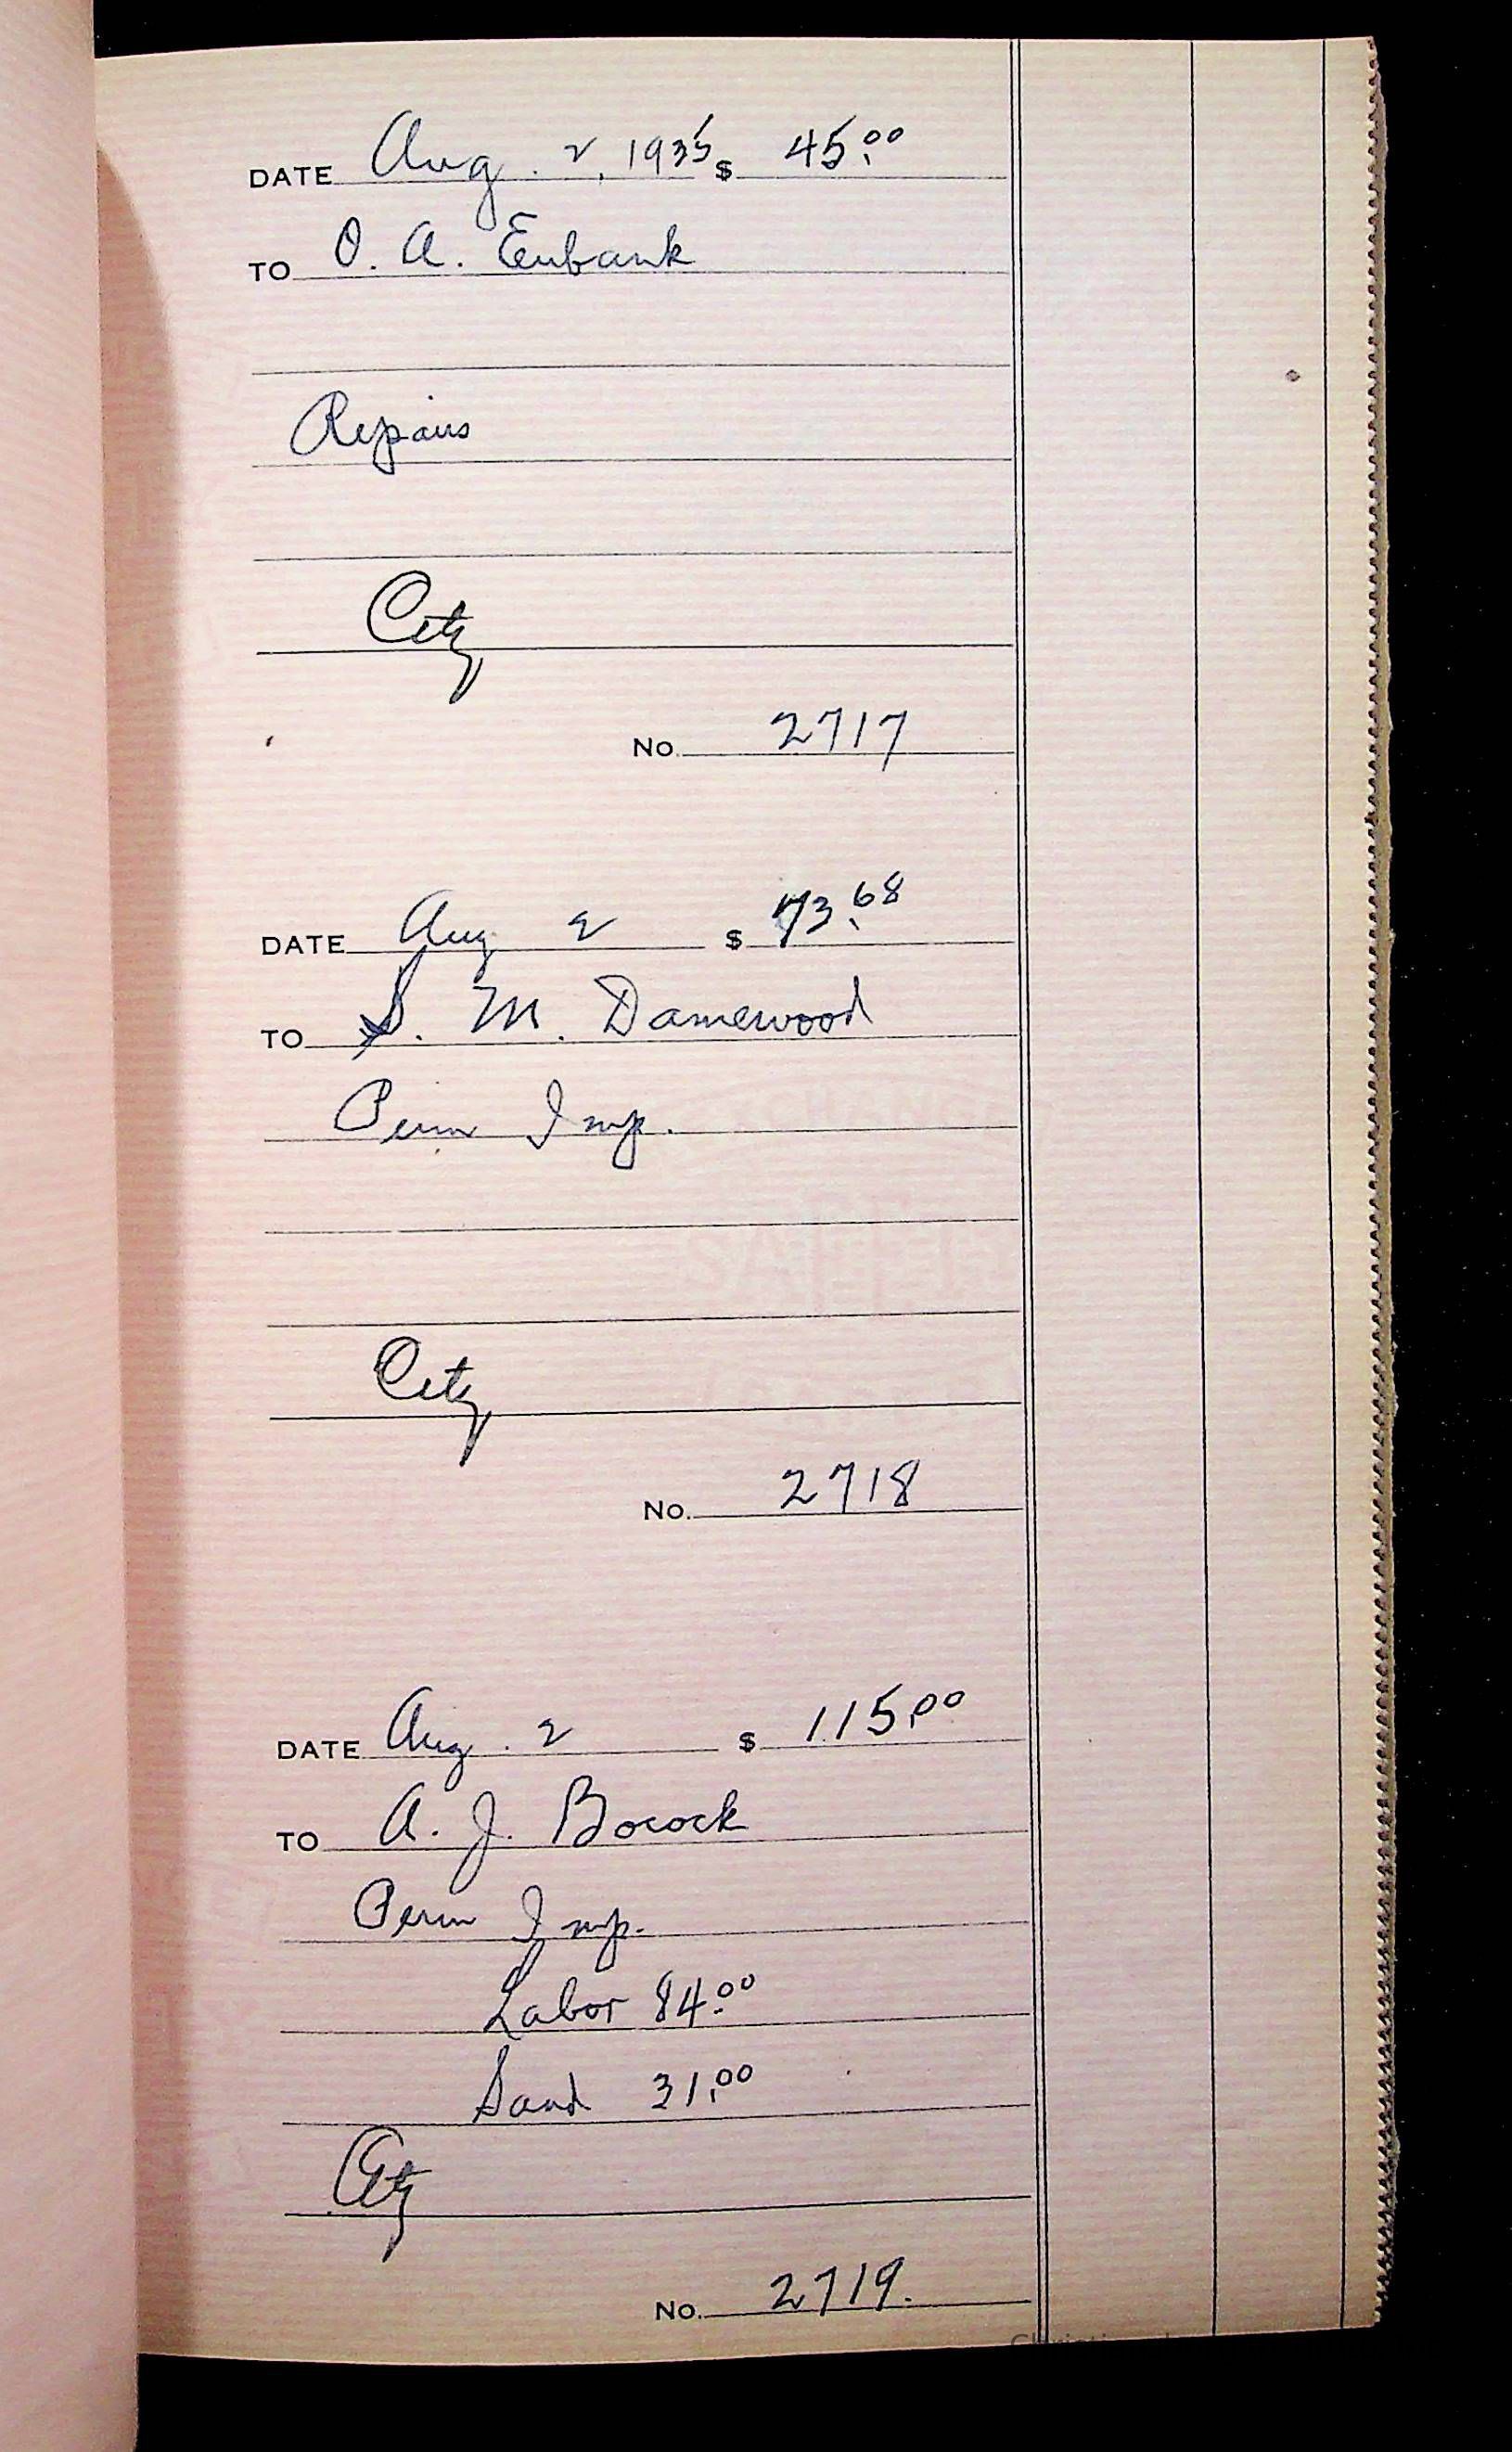 DATE Aug. 2, 1935 $ 45.00
TO O. A. Eubank
Repairs
City
No. 2717
DATE Aug 2 $ 73.68
TO S. M. Damewood
Perm Imp.
City
No. 2718
DATE Aug. 2 $ 115.00
TO A. J. Bocock
Perm Imp.
Labor 84.00
Sand 31.00
City
No. 2719.